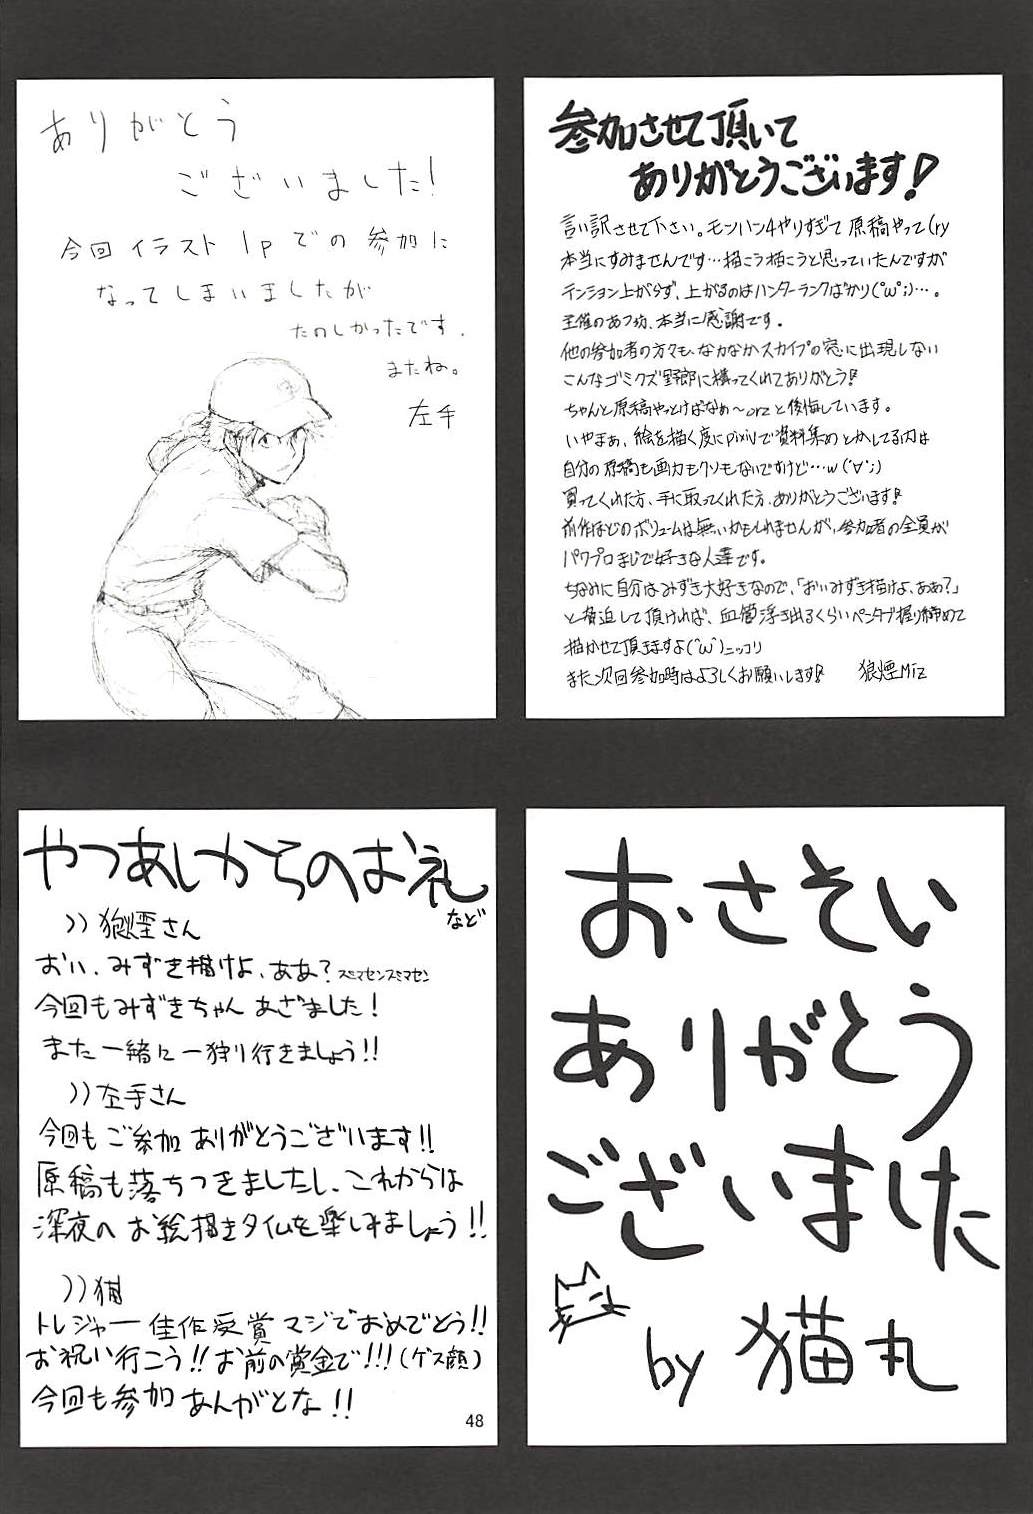 参加させて頂いて
ありがとうございます!
言い訳させて下さい。モンハン4やりすぎて原稿やって(ry
本当にすみませんです…描こう描こうと思っていたんですが
テンション上がらず、上がるのはハンターランクばかり(°ω°;)…。
主催のあつ坊、本当に感謝です。
他の参加者の方々も、なかなかスカイプの窓に出現しない
こんなゴミクズ野郎に構ってくれてありがとう!
ちゃんと原稿やっとけばなぁ〜orzと後悔しています。
いやまぁ、絵を描く度にpixivで資料集めとかしてる内は
自分の原稿も画力もクソもないですけど…w(´∀`;)
買ってくれた方、手に取ってくれた方、ありがとうございます!
前作ほどのボリュームは無いかもしれませんが、参加者の全員が
パワプロまじで好きな人達です。
ちなみに自分はみずき大好きなので、「おいみずき描けよ、ああ?」
と脅迫して頂ければ、血管浮き出るくらいペンタブ握り締めて
描かせて頂きますよ(^ω^)ニッコリ
また次回参加時はよろしくお願いします! 狼煙Miz
ありがとう
ございました!
今回イラスト1pでの参加に
なってしまいましたが
たのしかったです.
またね。
左手
おさそい
ありがとう
ございました
by 猫丸
やつあしからのお礼
など
))狼煙さん
おい、みずき描けよ、ああ?スミマセンスミマセン
今回もみずきちゃんあざました!
また一緒に一狩り行きましょう!!
))左手さん
今回もご参加ありがとうございます!!
原稿も落ちつきましたし、これからは
深夜のお絵描きタイムを楽しみましょう!!
))猫
トレジャー佳作受賞マジでおめでとう!!
お祝い行こう!!お前の賞金で!!!(ゲス顔)
今回も参加あんがとな!!
48